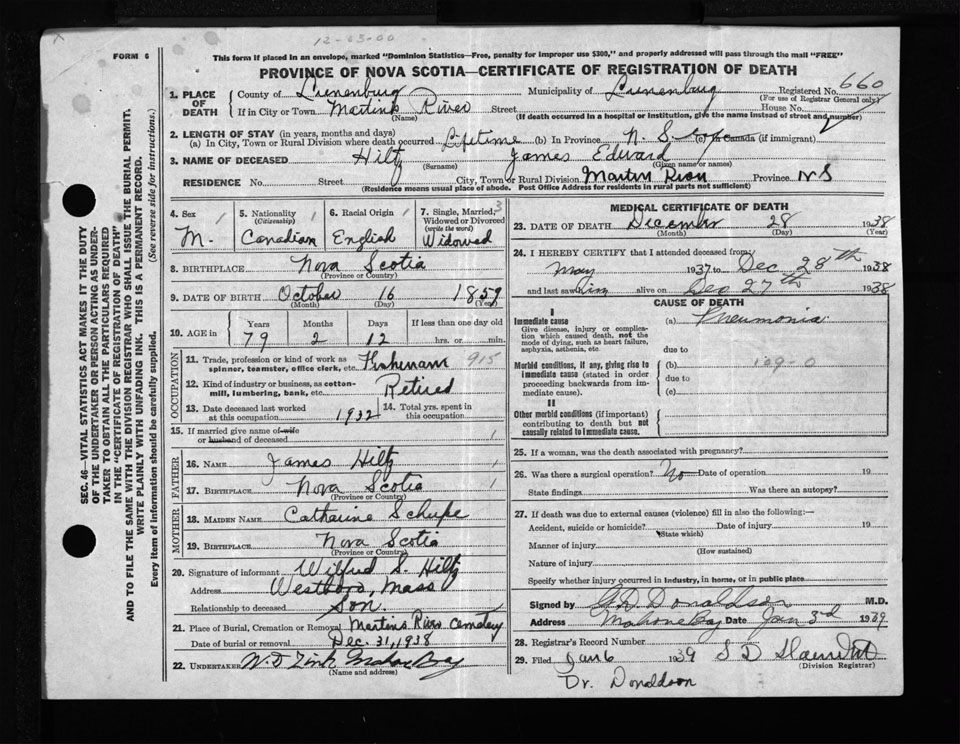 12-25-00
FORM 6
This form if placed in an envelope, marked "Dominion Statistics—Free, penalty for improper use $300," and properly addressed will pass through the mail "FREE"
PROVINCE OF NOVA SCOTIA—CERTIFICATE OF REGISTRATION OF DEATH
SEC. 46—VITAL STATISTICS ACT MAKES IT THE DUTY
OF THE UNDERTAKER OR PERSON ACTING AS UNDER-
TAKER TO OBTAIN ALL THE PARTICULARS REQUIRED
IN THE "CERTIFICATE OF REGISTRATION OF DEATH"
AND TO FILE THE SAME WITH THE DIVISION REGISTRAR WHO SHALL ISSUE THE BURIAL PERMIT.
WRITE PLAINLY WITH UNFADING INK. THIS IS A PERMANENT RECORD.
Every item of information should be carefully supplied. (See reverse side for instructions.)
1. PLACE OF DEATH County of Lunenburg Municipality of Lunenburg Registered No. 660
(For use of Registrar General only)
If in City or Town Martins River Street House No.
(Name) (If death occurred in a hospital or institution, give the name instead of street and number)
2. LENGTH OF STAY (in years, months and days)
(a) In City, Town or Rural Division where death occurred Lifetime (b) In Province N. S. (c) In Canada (if immigrant)
3. NAME OF DECEASED Hiltz James Edward
(Surname) (Given name or names)
RESIDENCE No. Street City, Town or Rural Division Martins River Province N S
(Residence means usual place of abode. Post Office Address for residents in rural parts not sufficient)
4. Sex M. 1
5. Nationality (Citizenship) Canadian 1
6. Racial Origin English 1
7. Single, Married, Widowed or Divorced (write the word) Widowed 3
8. BIRTHPLACE Nova Scotia
(Province or Country)
9. DATE OF BIRTH October 16 1859
(Month) (Day) (Year)
10. AGE in Years Months Days If less than one day old
79 2 12 hrs. or min.
OCCUPATION
11. Trade, profession or kind of work as spinner, teamster, office clerk, etc. Fishermann 915
12. Kind of industry or business, as cotton-mill, lumbering, bank, etc. Retired
13. Date deceased last worked at this occupation 1932
14. Total yrs. spent in this occupation
15. If married give name of wife or husband of deceased 1
FATHER
16. NAME James Hiltz 1
17. BIRTHPLACE Nova Scotia 1
(Province or Country)
MOTHER
18. MAIDEN NAME Catharine
19. BIRTHPLACE Nova Scotia
(Province or Country)
20. Signature of informant Wilfred S. Hiltz
Address Westboro, Mass
Relationship to deceased Son.
21. Place of Burial, Cremation or Removal Martins River Cemetery
Date of burial or removal Dec. 31, 1938
22. UNDERTAKER W. D Zink Mahone Bay
(Name and address)
MEDICAL CERTIFICATE OF DEATH
23. DATE OF DEATH December 28 1938
(Month) (Day) (Year)
24. I HEREBY CERTIFY that I attended deceased from
May 1937 to Dec 28th 1938
and last saw him alive on Dec 27th 1938
CAUSE OF DEATH
I
Immediate cause (a) Pneumonia
Give disease, injury or complication which caused death, not the mode of dying, such as heart failure, asphyxia, asthenia, etc.
due to
Morbid conditions, if any, giving rise to immediate cause (stated in order proceeding backwards from immediate cause).
(b) 109-0
due to
(c)
II
Other morbid conditions (if important) contributing to death but not causally related to immediate cause.
25. If a woman, was the death associated with pregnancy?
26. Was there a surgical operation? No Date of operation 19
State findings Was there an autopsy?
27. If death was due to external causes (violence) fill in also the following:—
Accident, suicide or homicide? Date of injury 19
(State which)
Manner of injury
(How sustained)
Nature of injury
Specify whether injury occurred in industry, in home, or in public place
Signed by Donaldson M.D.
Address Mahone Bay Date Jan 3rd 1939
28. Registrar's Record Number
29. Filed Jan 6 1939 S D
(Division Registrar)
Dr. Donaldson